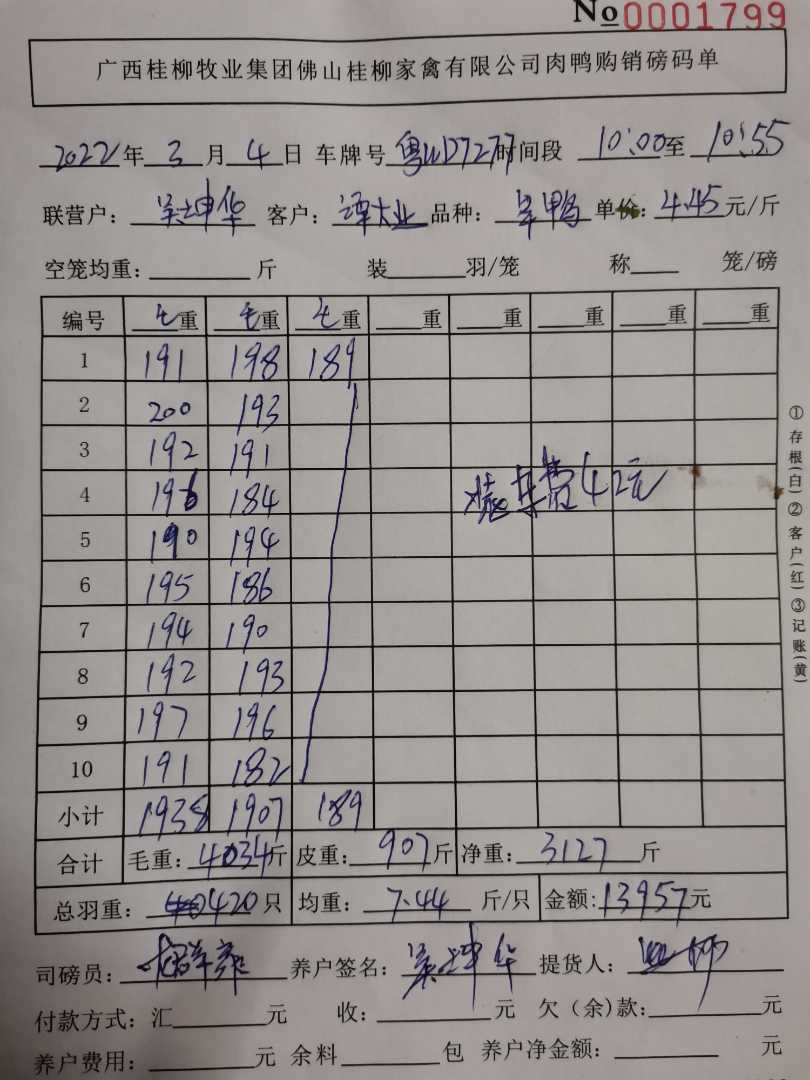 No 0001799
广西桂柳牧业集团佛山桂柳家禽有限公司肉鸭购销磅码单
2022年 3 月 4 日 车牌号 粤 D7277 时间段 10:00 至 10:55
联营户: 吴坤华 客户: 谭大业 品种: 鸭 单价: 4.45 元/斤
空笼均重: 斤 装 羽/笼 称 笼/磅
编号 毛重 毛重 毛重 重 重 重 重 重
1 191 198 189
2 200 193
3 192 191
4 196 184 装车费42元
5 190 194
6 195 186
7 194 190
8 192 193
9 197 196
10 191 182
小计 1938 1907 189
合计 毛重: 4034 斤 皮重: 907 斤 净重: 3127 斤
总羽重: 420 只 均重: 7.44 斤/只 金额: 13957 元
司磅员: 养户签名: 吴坤华 提货人:
付款方式: 汇 元 收: 元 欠(余)款: 元
养户费用: 元 余料 包 养户净金额: 元
①存根(白)②客户(红)③记账(黄)